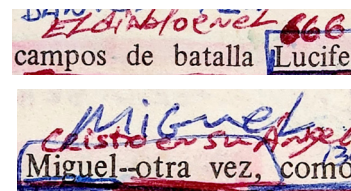 El diablo en el 666
campos de batalla Lucife
Miguel
Cristo en su Angel
Miguel--otra vez, como